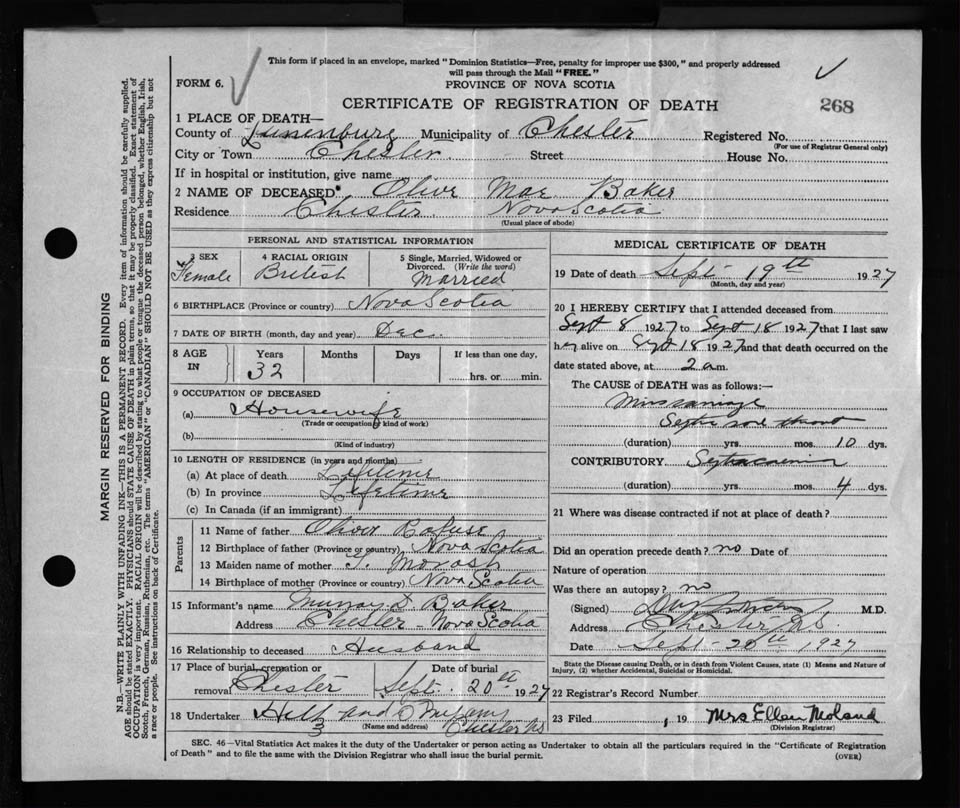 This form if placed in an envelope, marked "Dominion Statistics—Free, penalty for improper use $300," and properly addressed
will pass through the Mail "FREE."
FORM 6.
PROVINCE OF NOVA SCOTIA
CERTIFICATE OF REGISTRATION OF DEATH
268
1 PLACE OF DEATH—
County of Lunenburg Municipality of Chester Registered No.
(For use of Registrar General only)
City or Town Chester Street House No.
If in hospital or institution, give name
2 NAME OF DECEASED Olive Mae Baker
Residence Chester Nova Scotia
(Usual place of abode)
PERSONAL AND STATISTICAL INFORMATION
3 SEX 4 RACIAL ORIGIN 5 Single, Married, Widowed or
Divorced. (Write the word)
Female British Married
6 BIRTHPLACE (Province or country) Nova Scotia
7 DATE OF BIRTH (month, day and year) Dec.
8 AGE IN Years Months Days If less than one day,
32 hrs. or min.
9 OCCUPATION OF DECEASED
(a) Housewife
(Trade or occupation or kind of work)
(b)
(Kind of industry)
10 LENGTH OF RESIDENCE (in years and months)
(a) At place of death Lifetime
(b) In province Lifetime
(c) In Canada (if an immigrant)
Parents
11 Name of father Oliver Rafuse
12 Birthplace of father (Province or country) Nova Scotia
13 Maiden name of mother Morash
14 Birthplace of mother (Province or country) Nova Scotia
15 Informant's name Baker
Address Chester - Nova Scotia
16 Relationship to deceased Husband
17 Place of burial, cremation or
removal Chester
Date of burial
Sept. 20th 1927
18 Undertaker and
(Name and address) Chester NS
MEDICAL CERTIFICATE OF DEATH
19 Date of death Sept 19th 1927
(Month, day and year)
20 I HEREBY CERTIFY that I attended deceased from
Sept 8 1927 to Sept 18 1927 that I last saw
her alive on Sept 18 1927 and that death occurred on the
date stated above, at 2 a m.
The CAUSE of DEATH was as follows:—
Miscarriage
Septic sore throat
(duration) yrs. mos. 10 dys.
CONTRIBUTORY
(duration) yrs. mos. 4 dys.
21 Where was disease contracted if not at place of death?
Did an operation precede death? no Date of
Nature of operation
Was there an autopsy? no
(Signed) M.D.
Address Chester NS
Date Sept 20th 1927
State the Disease causing Death, or in death from Violent Causes, state (1) Means and Nature of
Injury, (2) whether Accidental, Suicidal or Homicidal.
22 Registrar's Record Number
23 Filed , 19 Mrs Ellen
(Division Registrar)
SEC. 46—Vital Statistics Act makes it the duty of the Undertaker or person acting as Undertaker to obtain all the particulars required in the "Certificate of Registration
of Death" and to file the same with the Division Registrar who shall issue the burial permit.
(OVER)
MARGIN RESERVED FOR BINDING
N.B.—WRITE PLAINLY WITH UNFADING INK—THIS IS A PERMANENT RECORD. Every item of information should be carefully supplied.
AGE should be stated EXACTLY. PHYSICIANS should STATE CAUSE OF DEATH in plain terms, so that it may be properly classified. Exact statement of
OCCUPATION is very important. RACIAL ORIGIN will be described by stating to what people or tongue the deceased person belonged, whether English, Irish,
Scotch, French, German, Russian, Ruthenian, etc. The terms "AMERICAN" or "CANADIAN" SHOULD NOT BE USED as they express citizenship but not
a race or people. See instructions on back of Certificate.